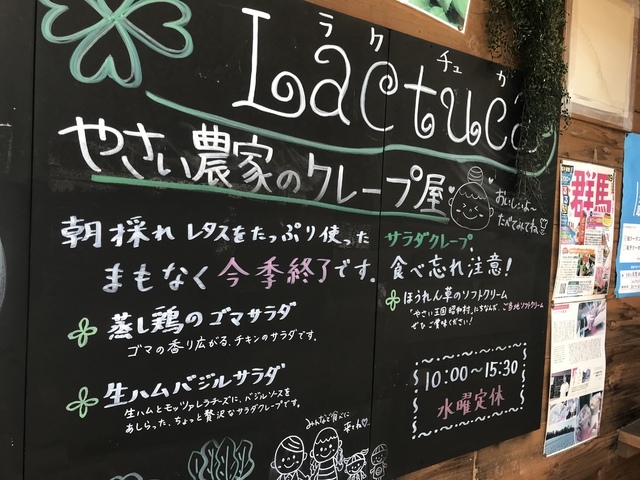 ラクチュカ
Lactuca
やさい農家のクレープ屋
おいしいよ〜
たべてみてね
朝採れレタスをたっぷり使った
サラダクレープ、
まもなく今季終了です。
食べ忘れ注意!
蒸し鶏のゴマサラダ
ゴマの香り広がる、チキンのサラダです。
生ハムバジルサラダ
生ハムとモッツァレラチーズに、バジルソースを
あしらった、ちょっと贅沢なサラダクレープです。
ほうれん草のソフトクリーム
"やさい王国 昭和村"にちなんだ、ご当地ソフトクリーム
ぜひご賞味ください!
10:00〜15:30
水曜定休
みんなで食べに
来てね
群馬